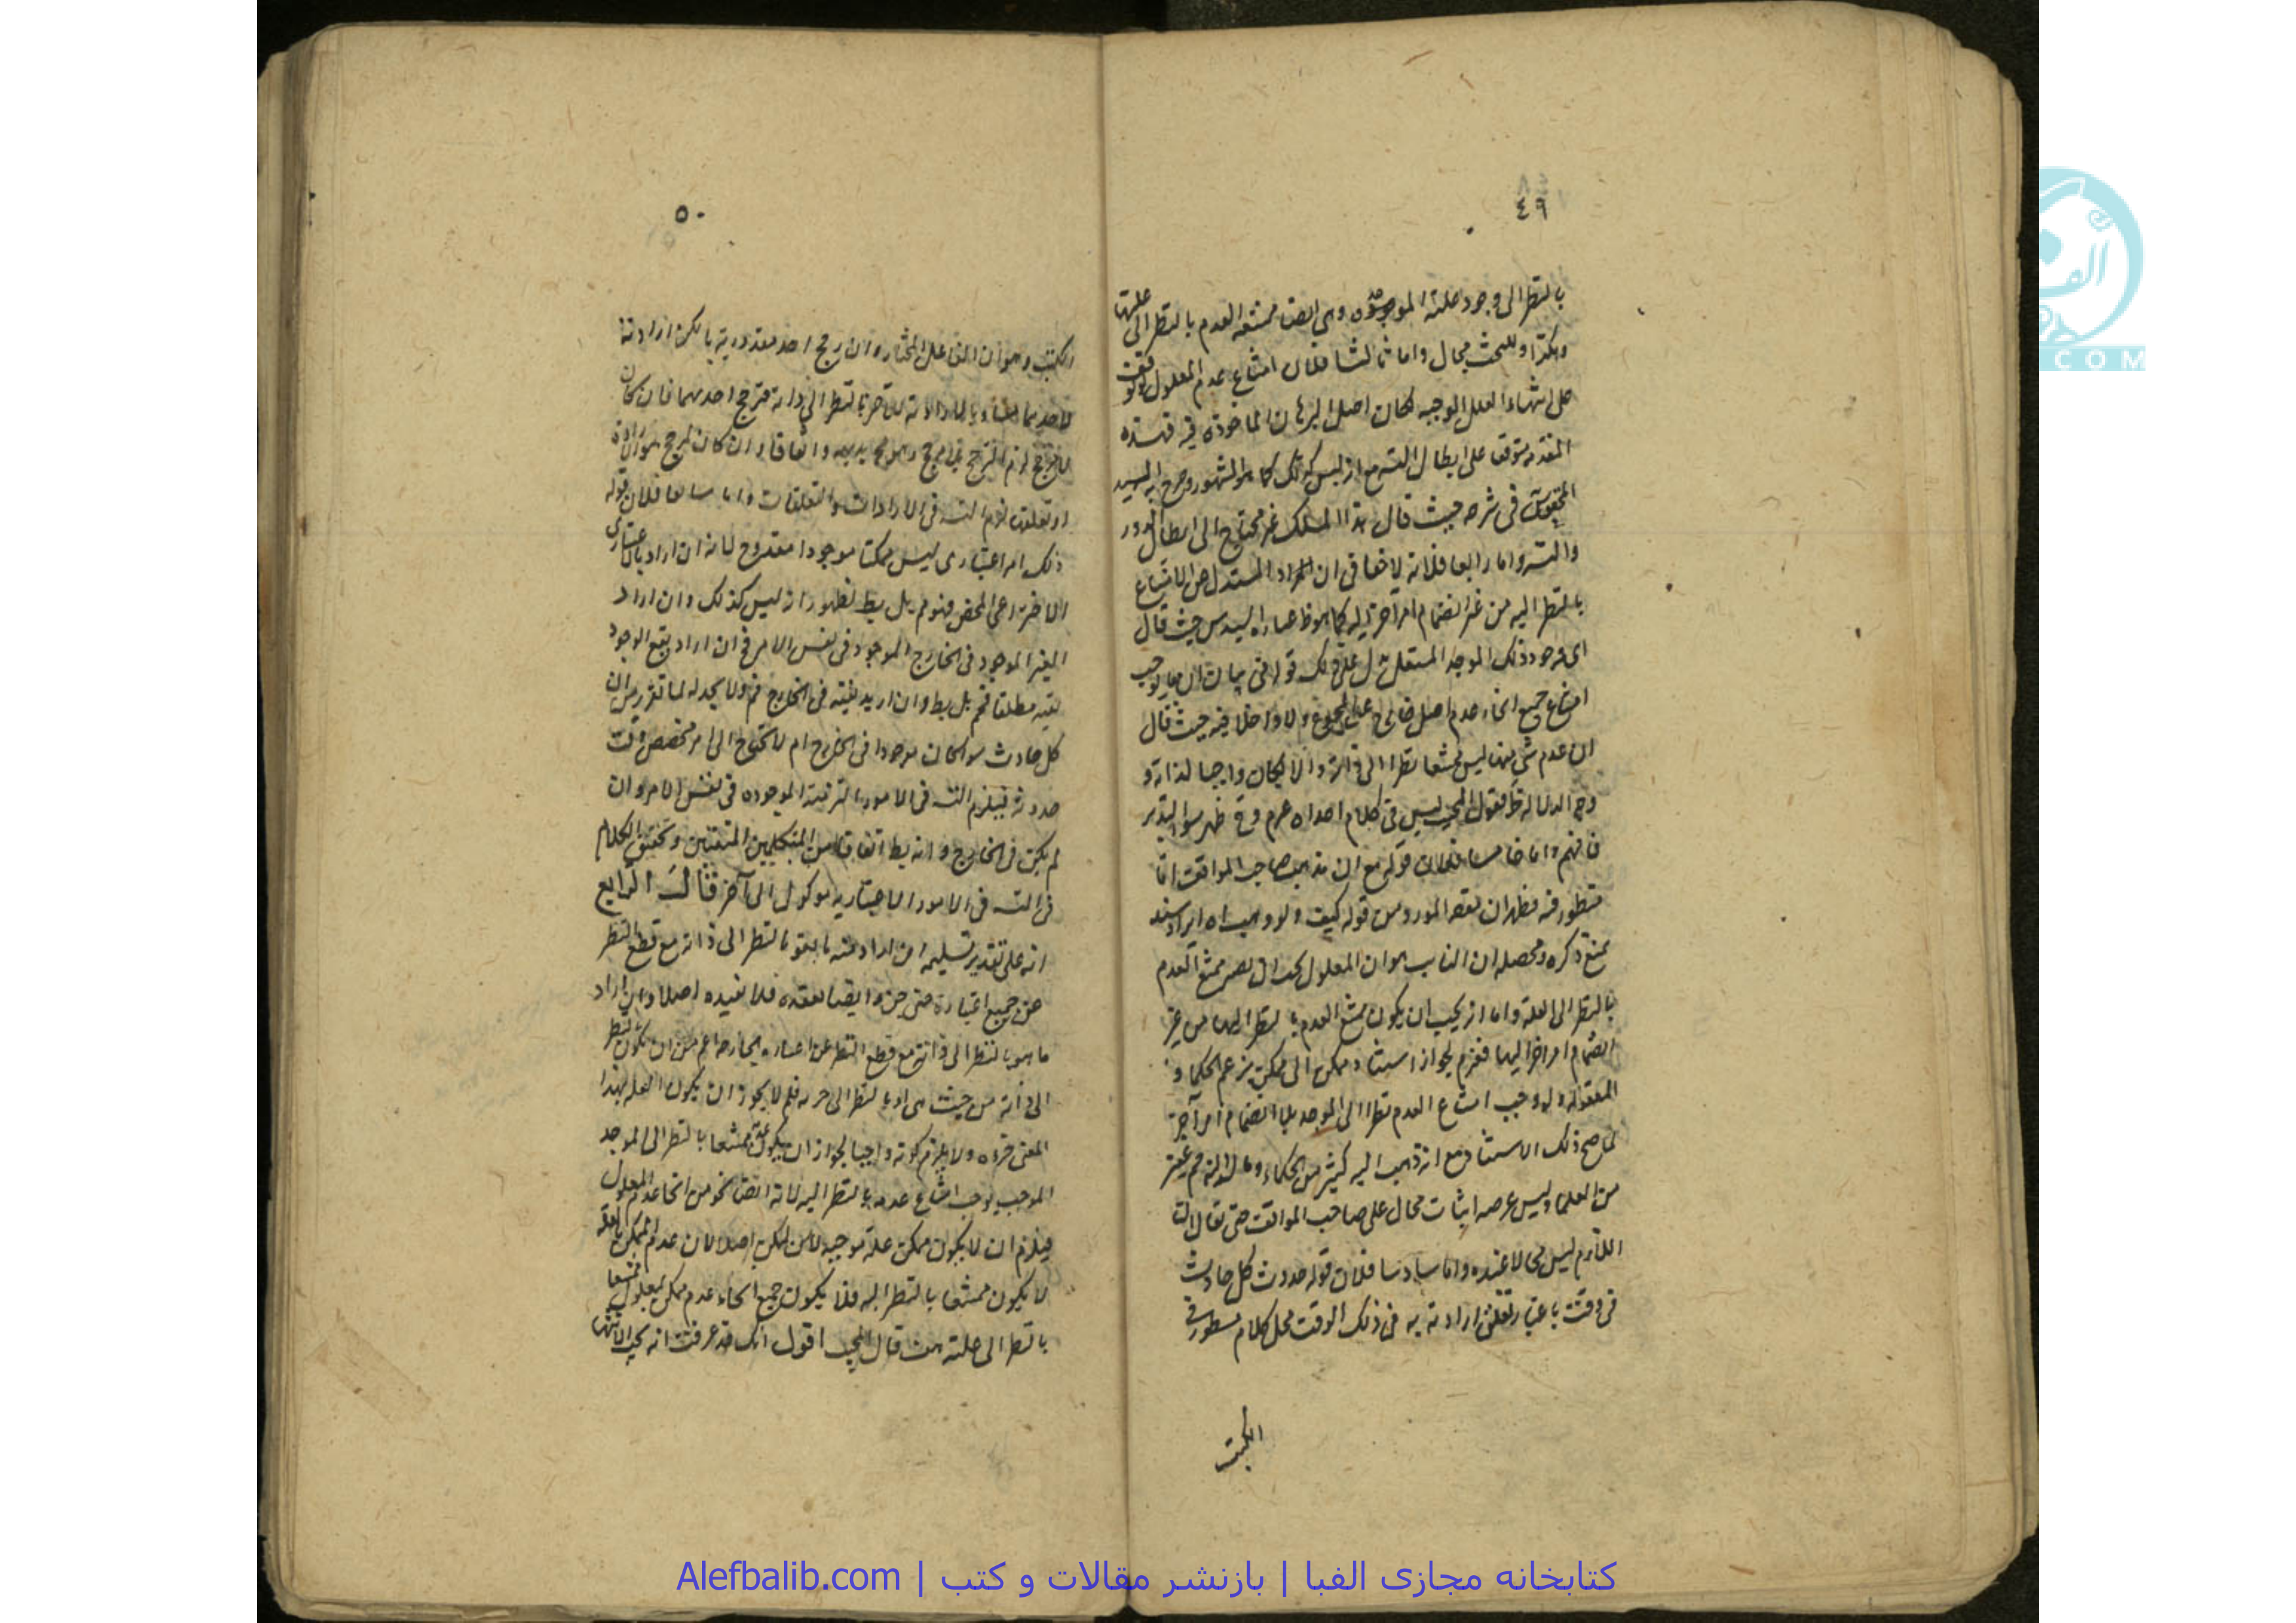 ٤٩
بالنظر الى وجود علته الموجودة وهى ايضا ممتنعه العدم بالنظر الى علتها
وهكذا وللبحث مجال واما ثالثا فلان امتناع عدم المعلول لو توقف
على انتهاء العلل الموجبه لكان اصل البرهان الماخوذه فيه هذه
المقدمه متوقفا على ابطال التس مع انه ليس كذلك كما هو المشهور وصرح به السيد
المحقق فى شرحه حيث قال هذا المسلك غير محتاج الى ابطال الدور
والتس واما رابعا فلانه لا خفا فى ان المراد المستدل هى الامتناع
بالنظر اليه من غير انضمام امر آخر اليه كما هو ظ عباره السيد س حيث قال
اى وجود ذلك الموجد المستقل يدل على ذلك قوله فى بيان ان ما يوجب
امتناع جميع انحاء عدم اصل خارج عن المجموع ولا داخلا فيه حيث قال
ان عدم شئ منها ليس ممتنعا نظرا الى ذاته والا لكان واجبا لذاته و
وجه الدلاله ظ فقول المجيب ليس فى كلام اه عرم وقد ظهر سوء التدبر
فافهم واما خامسا فلان قوله مع ان مذهب صاحب المواقف انما
منظور فيه فظهر ان بعد المورد من قوله كيف ولو وجب اه ايراد سند
لمنع ذكره ومحصله ان الثابت هو ان المعلول يجب ان يصير ممتنع العدم
بالنظر الى العلة واما انه يجب ان يكون ممتنع العدم بالنظر اليها من غير
انضمام امر اخر اليها فغير م لجواز استناد ممكن الى ممكن بزعم الحكماء و
المعتزله ولو وجب امتناع العدم نظرا الى الموجد بلا انضمام امر آخر
لما صح ذلك الاستناد مع انه ذهب اليه كثير من الحكماء وغيرهم
من العلما وليس غرضه اثبات محال على صاحب المواقف حتى يقال ان
اللازم ليس محالا عنده واما سادسا فلان قوله حدوث كل حادث
فى وقت باعتبار تعلق ارادته به فى ذلك الوقت محل كلام مسطور فى
الكتب
٥٠
الكتب وهو ان الفاعل المختار وان رجح احد مقدوريه بالكن ارادته
لاحدهما مساويا لارادته للآخر بالنظر الى ذاته فترجح احدهما فان كان
لا لمرجح لزم الترجح بلا مرجح وهو مح بديهة واتفاقا وان كان لمرجح هو ارادة
او تعلق لزم التس فى الارادات والتعلقات واما سابعا فلان قوله
ذلك امر اعتبارى ليس ممكنا موجودا مقدوح لانه ان اراد بالاعتبارى
الاختراعى المحض فهو م بل بط لظهور انه ليس كذلك وان اراد
الغير الموجود فى الخارج الموجود فى نفس الامر فح ان اراد بنفى الوجود
نفيه مطلقا فم بل بط وان اريد نفيه فى الخارج فم ولا يجديه لما تقرر من ان
كل حادث سواء كان موجودا فى الخارج ام لا محتاج الى امر مخصص وقت
حدوثه فيلزم التس فى الامور المترتبة الموجوده فى نفس الامر وان
لم يكن فى الخارج وانه بط اتفاقا من المتكلمين المتقنين وتحقيق الكلام
فى التس فى الامور الاعتباريه موكول الى آخر قال الرابع
انه على تقدير تسليمه ان اراد منه ما هو بالنظر الى ذاته مع قطع النظر
عن جميع اعتباراته حتى حيث وايضا نعقده فلا نفيده اصلا وان اراد
ما هو بالنظر الى ذاته مع قطع النظر عن اعتباراته الخارجه اعم من ان يكون بالنظر
الى ذاته من حيث هى او بالنظر الى جزئه فلم لا يجوز ان يكون العله بهذا
المعنى جزءه ولا يلزم كونه واجبا لجواز ان يكون عدمه ممتنعا بالنظر الى الموجد
الموجب يوجب امتناع عدمه بالنظر اليه لانه ايضا نحو من انحا عدم المعلول
فيلزم ان لا يكون ممكن علة موجبه لممكن اصلا لان عدم الممكن العله
لا يكون ممتنعا بالنظر اليه فلا يكون جميع انحاء عدم ممكن المعلول ممتنعا
بالنظر الى علته هف قال المجيب اقول انك قد عرفت انه يجب الانتهاء
كتابخانه مجازی الفبا | بازنشر مقالات و کتب | Alefbalib.com
الف
COM